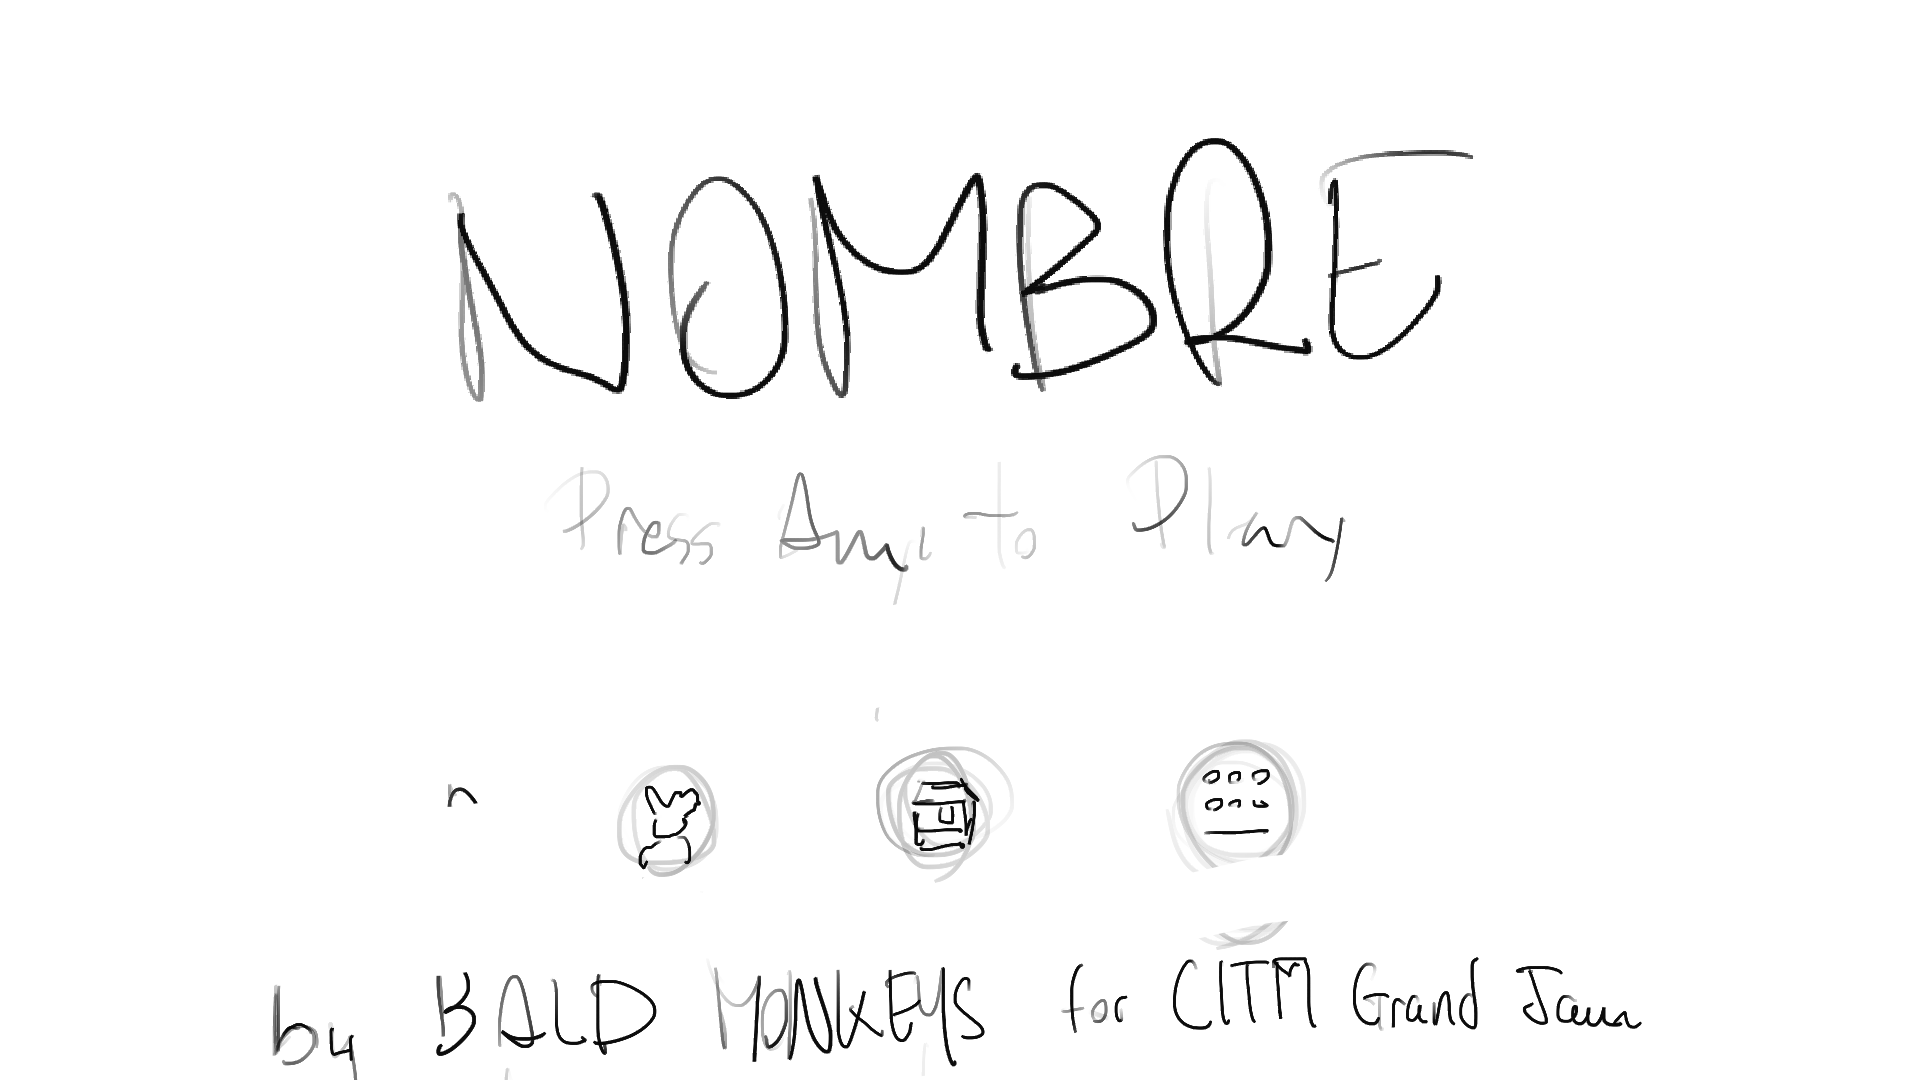 NOMBRE
Press Any to Play
by BALD MONKEYS for CITM Grand Jam